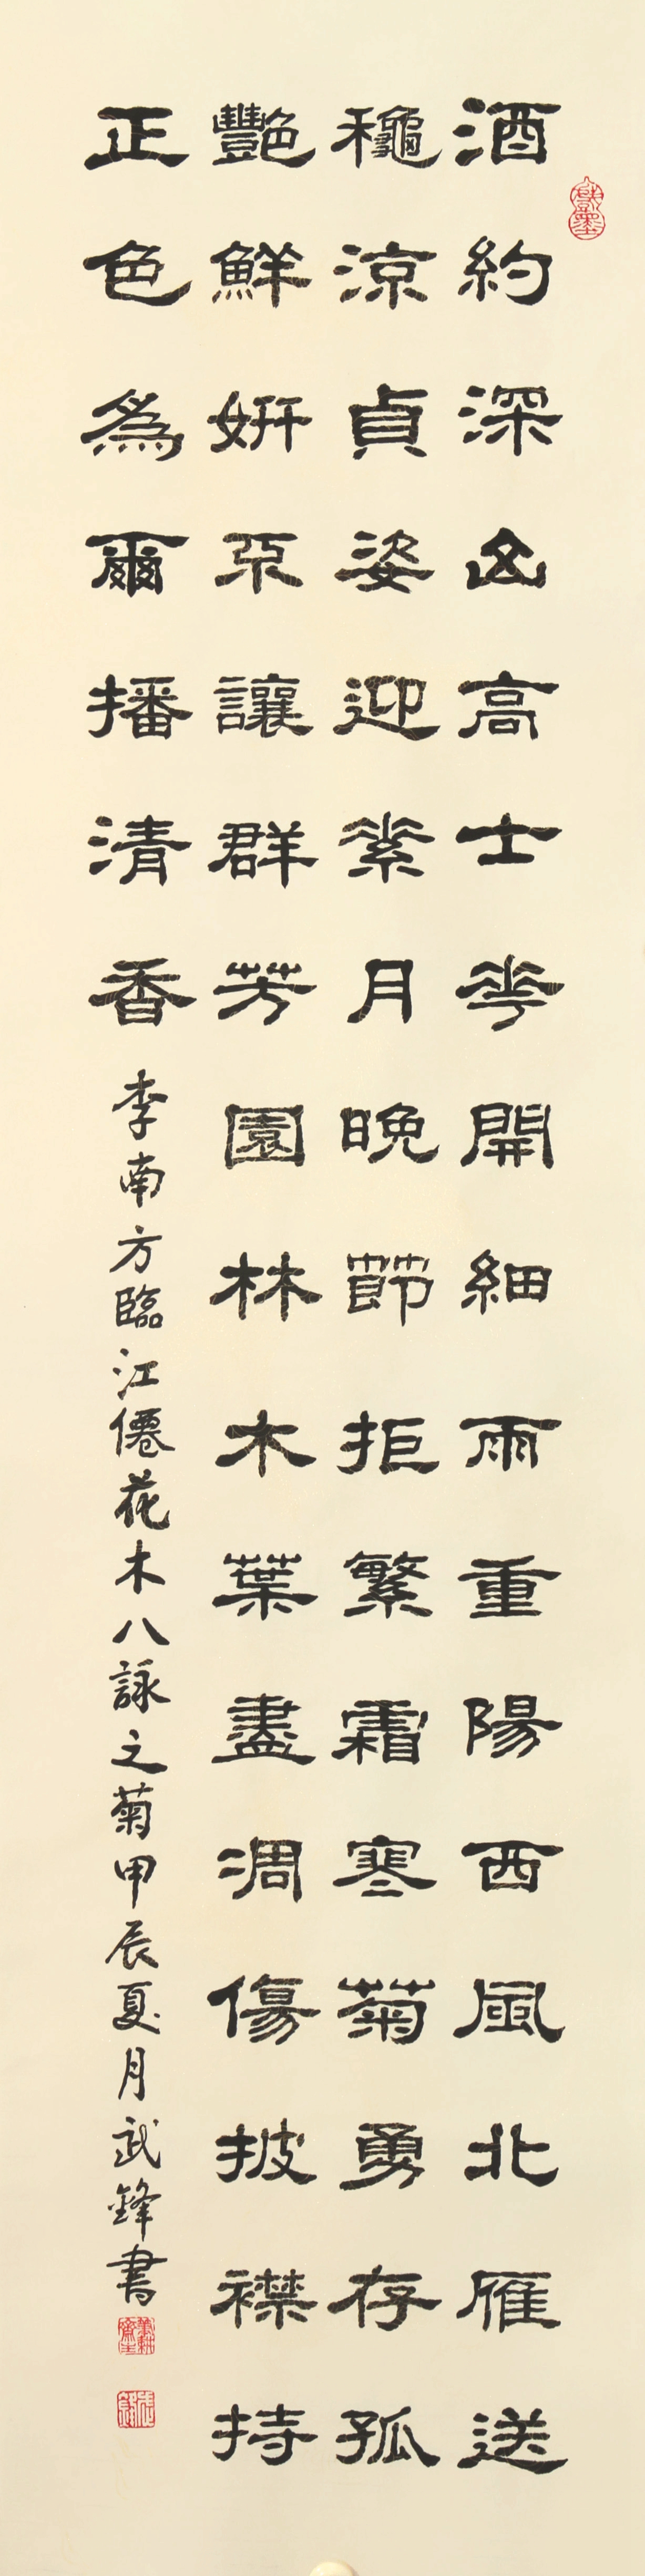 酒約深山高士花開細雨重陽西風北雁送
龝涼貞姿迎素月晚節拒繁霜寒菊勇存孤
豔鮮妍不讓群芳園林木葉盡凋傷披襟持
正色為爾播清香
李南方臨江僊花木八詠之菊甲辰夏月武鋒書